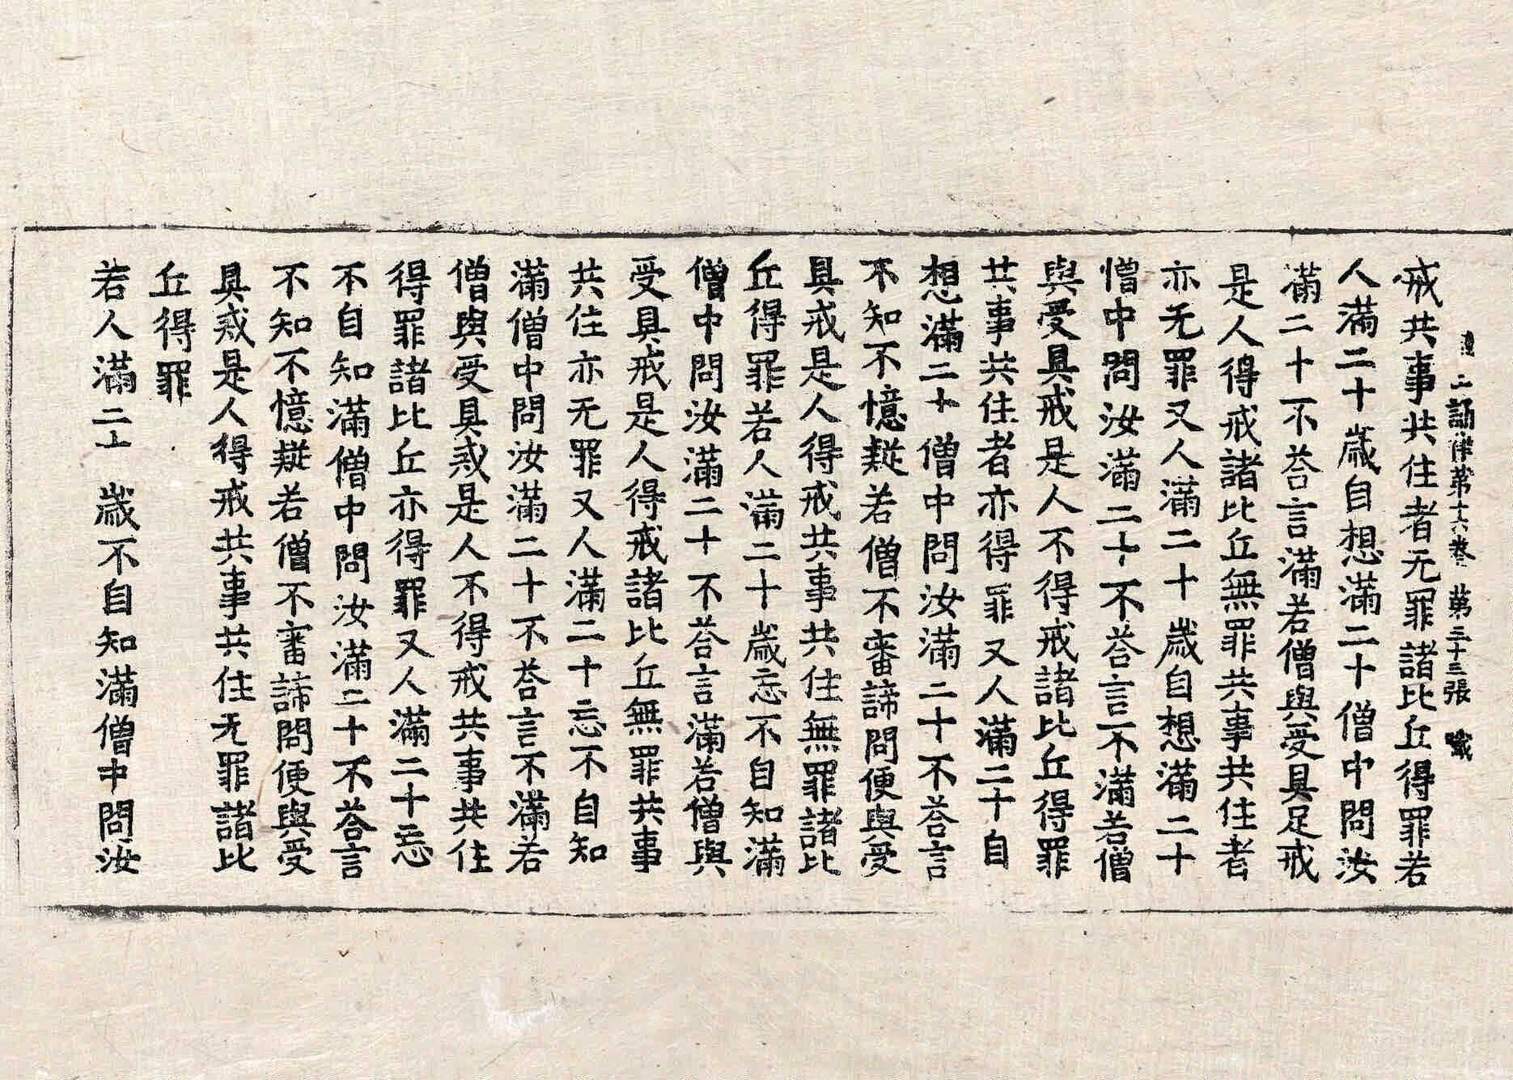 誦律第十六卷 第三十三張
戒共事共住者无罪諸比丘得罪若
人滿二十歲自想滿二十僧中問汝
滿二十不荅言滿若僧與受具足戒
是人得戒諸比丘無罪共事共住者
亦无罪又人滿二十歲自想滿二十
僧中問汝滿二十不荅言不滿若僧
與受具戒是人不得戒諸比丘得罪
共事共住者亦得罪又人滿二十自
想滿二十僧中問汝滿二十不荅言
不知不憶疑若僧不審諦問便與受
具戒是人得戒共事共住無罪諸比
丘得罪若人滿二十歲忘不自知滿
僧中問汝滿二十不荅言滿若僧與
受具戒是人得戒諸比丘無罪共事
共住亦无罪又人滿二十忘不自知
滿僧中問汝滿二十不荅言不滿若
僧與受具戒是人不得戒共事共住
得罪諸比丘亦得罪又人滿二十忘
不自知滿僧中問汝滿二十不荅言
不知不憶疑若僧不審諦問便與受
具戒是人得戒共事共住无罪諸比
丘得罪
若人滿二十歲不自知滿僧中問汝